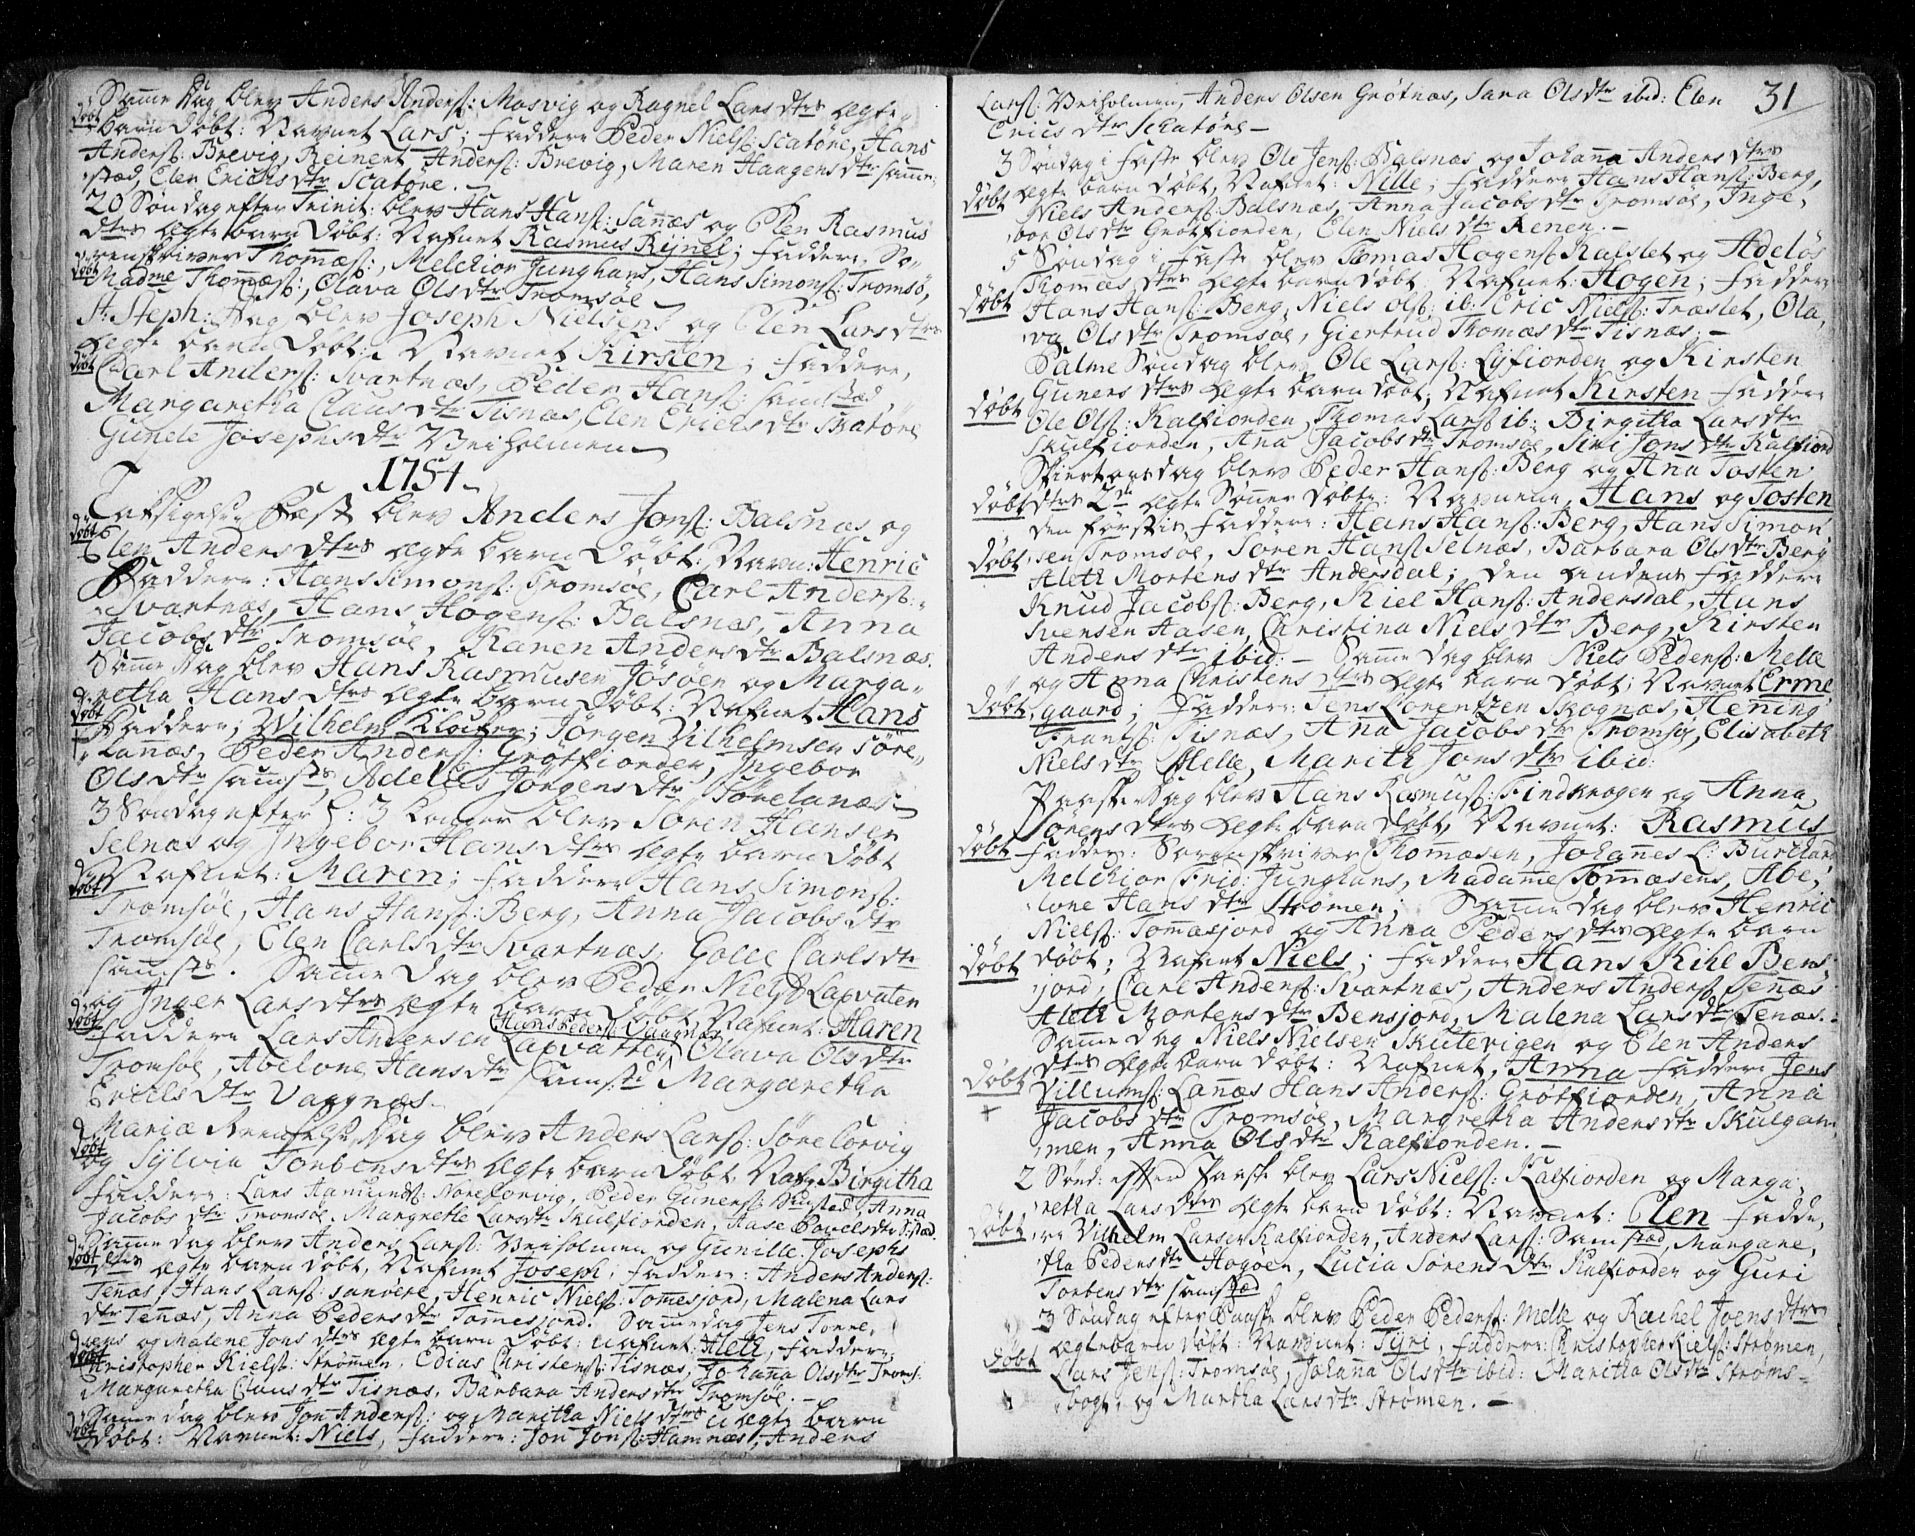 Samme Dag blev Anders Anders: Mosvig og Ragnel Lars dtrs ægte
døbt
barn døbt: Navnet Lars; Faddere Peder Niels: Scatøre, Hans
Anders: Brevig, Reinert Anders: Brevig, Maren Haagens dtr samme-
stæd, Elen Erichs dtr Scatøre.
20 Søndag efter Trinit: blev Hans Hans: Sañæs og Elen Rasmus
dtrs ægte barn døbt: Nafnet Rasmus Rÿnel; Faddere, So-
renskriver Thomæs:, Melchior Junghans, Hans Simons: Tromsø,
døbt
Madme Thomæs:, Olava Ols dtr Tromsøe
St: Steph: Dag blev Joseph Nielsens og Elen Lars dtrs
ægte barn døbt: Navnet Kirsten; Faddere,
døbt
Carl Anders: Svartnæs, Peder Hans: samstæd,
Margaretha Claus dtr Tisnæs, Elen Erichs dtr Skatøre
Gunele Josephs dtr Veiholmen
1754
Taksigelse Fest blev Anders Jons: Balsnæs og
døbt
Elen Anders dtrs ægte barn døbt: Navn: Henric
Faddere: Hans Simons: Tromsøe, Carl Anders:
Svartnæs, Hans Hogens: Balsnæs, Anna
Jacobs dtr Tromsøe, Karen Anders dtr Balsnæs.
Same Dag blev Hans Rasmusen Jøsøen og Marga-
retha Hans dtrs ægte barn døbt: Nafnet Hans
døbt
Faddere; Wilhelm Kløcker; Jørgen Vilhelmsen Søre-
Lanæs, Peder Anders: Grøtfiorden, Ingebor
Ols dtr samsts, Adelus Jørgens dtr Sørelanæs
3 Søndag efter H: 3 Konger blev Søren Hansen
Selnæs og Ingebor Hans dtrs ægte barn døbt
døbt
Nafnet: Maren; Faddere Hans Simons:
Tromsøe, Hans Hans: Berg, Anna Jacobs dtr
Tromsøe, Elen Carls dtr Svartnæs, Golle Carls dtr
samsts. Same Dag blev Peder Niels: Laxvaten
og Inger Lars dtrs ægte barn døbt Nafnet: Haren
døbt
Hans Peders: Vaagnæs
Faddere Lars Andersen Laxvatten, Olava Ols dtr
Tromsøe, Abelone Hans dtr samstd Margaretha
Erichs dtr Vaggnæs.
Mariæ Renselse Dag blev Anders Lars: Søre Corvig
døbt
og Sylvia Torbens dtrs ægte barn døbt, Nafn: Birgitha
Faddere: Lars Hamunds: Noreforvig, Peder Guners: samstæd, Anna
Jacobs dtr Tromsøe, Margrethe Lars dtr Skulfiorden, Aase Povels dtr S:stæd.
Same Dag blev Anders Lars: Veiholmen og Gunille Josephs
døbt
dtrs ægte barn døbt, Nafnet Joseph; Faddere: Anders Anders:
Tenæs, Hans Lars: sanøere, Henric Niels: Tomesjord, Malena Lars
dtr Tenæs, Anna Peders dtr Tomesjord. Same dag Jens Torre,
sens og Malene Jons dtrs ægte barn døbt: Nafnet: Aleth, Faddere;
døbt
Christopher Kiels: Strømmen, Edias Christens: Tisnæs, Johanna Ols dtr Troms:
Margaretha Claus dtr Tisnæs, Barbara Anders dtr Tromsøe.
Same dag blev Jon Anders: og Maritha Niels dtrs ægte barn
døbt
døbt: Navnet: Niels, Faddere: Jon Jons: Hamnæs, Anders
31
Lars: Veiholmen, Anders Olsen Grøtnæs, Sara Ols dtr ibid: Elen
Erics dtr Schatøre
3 Søndag i Faste blev Ole Jens: Balsnæs og Johanna Anders dtrs
døbt
ægte barn døbt, Nafnet: Nille; Faddere Hans Hans: Berg,
Niels Anders: Balsnæs, Anna Jacobs dtr Tromsøe, Inge,
bor Ols dtr Grøtfiorden, Elen Niels dtr Renen.
5 Søndag i Faste blev Tomas Hogens: Rafslet og Adeløs
Thomæs dtrs ægte barn døbt Nafnet: Hogen; Faddere
døbt
Hans Hans: Berg, Niels Ols: ib: Eric Niels: Træslet, Ola,
va Ols dtr Tromsøe, Giertrud Thomæs dtr Tisnæs.
Palme Søndag blev Ole Lars: Lyfiorden og Kirsten
Guners dtrs ægte barn døbt, Nafnet Kirsten Faddere
døbt
Ole Ols: Kalfiorden, Thomas Lars: ib: Birgitha Lars dtr
Skulfiorden, Ana Jacobs dtr Tromsøe, Siri Jons dtr Kalfiord
Skiertorsdag blev Peder Hans: Berg og Ana Tosten
døbt
dtrs 2de ægte Sønner døbte: Navnene, Hans og Tosten
den førstis Faddere: Hans Hans: Berg, Hans Simon
døbt
sen Tromsøe, Søren Hans: Selnæs, Barbara Ols dtr Berg
Aleth Mortens dtr Andersdal; den andens Faddere
Knud Jacobs: Berg, Kiel Hans: Andersdal, Hans
Svensen Aasen, Christina Niels dtr Berg, Kirsten
Anders dtr ibid: Same dag blev Niels Peders: Melle
og Anna Christens dtrs ægte barn døbt; Navnet Erme
døbt
gaard; Faddere: Jens Lorentzen Skognæs, Hening
Frans: Tisnæs, Ana Jacobs dtr Tromsøe, Elisabeth
Niels dtr Melle, Marith Jons dtr ibid:
Paaske Dag blev Hans Rasmus: Findkrogen og Anna
Sørens dtrs ægte barn døbt, Navnet: Rasmus
døbt
Fadder: Sorenskriver Thomæsen, Johannes L: Burchard
Melchior Frid: Junghans, Madame Tomæsens, Abe,
lone Hans dtr Stromen; Same dag blev Henric
Niels: Tomasjord og Anna Peders dtrs ægte barn
døbt
døbt; Nafnet Niels; Faddere Hans Kihl Bens,
jord, Carl Anders: Svartnæs, Anders Anders: Tenæs
Aleth Mortens dtr Bensjord, Malena Lars dtr Tenæs.
Same dag Niels Nielsen Skutevigen og Elen Anders
dtrs ægte barn døbt: Nafnet, Anna Faddere Jens
døbt
+
Villums: Lanæs Hans Anders: Grøtfiorden, Anna
Jacobs dtr Tromsøe, Margretha Anders dtr Skulgam
men, Anna Ols dtr Kalfiorden.
2 Sønd: efter Paaske blev Lars Niels: Kalfiorden og Marga,
retha Lars dtrs ægte barn døbt: Navnet: Elen Fadde,
døbt
re Vilhelm Larsen Kalfiorden, Anders Lars: Samstæd, Margare,
tha Peders dtr Høgøen, Lucia Sørens dtr Kalfiorden og Guri
Torbens dtr samstæd
3 Søndag efter Paaske blev Peder Peders: Melle og Rachel Joens dtrs
ægte barn døbt: Navnet: Syri, Faddere: Christopher Kiels: Strømen,
døbt
Lars Jens: Tromsøe, Johanna Ols dtr ibid: Maritha Ols dtr Strøms-
bogt, og Martha Lars dtr Strømen.